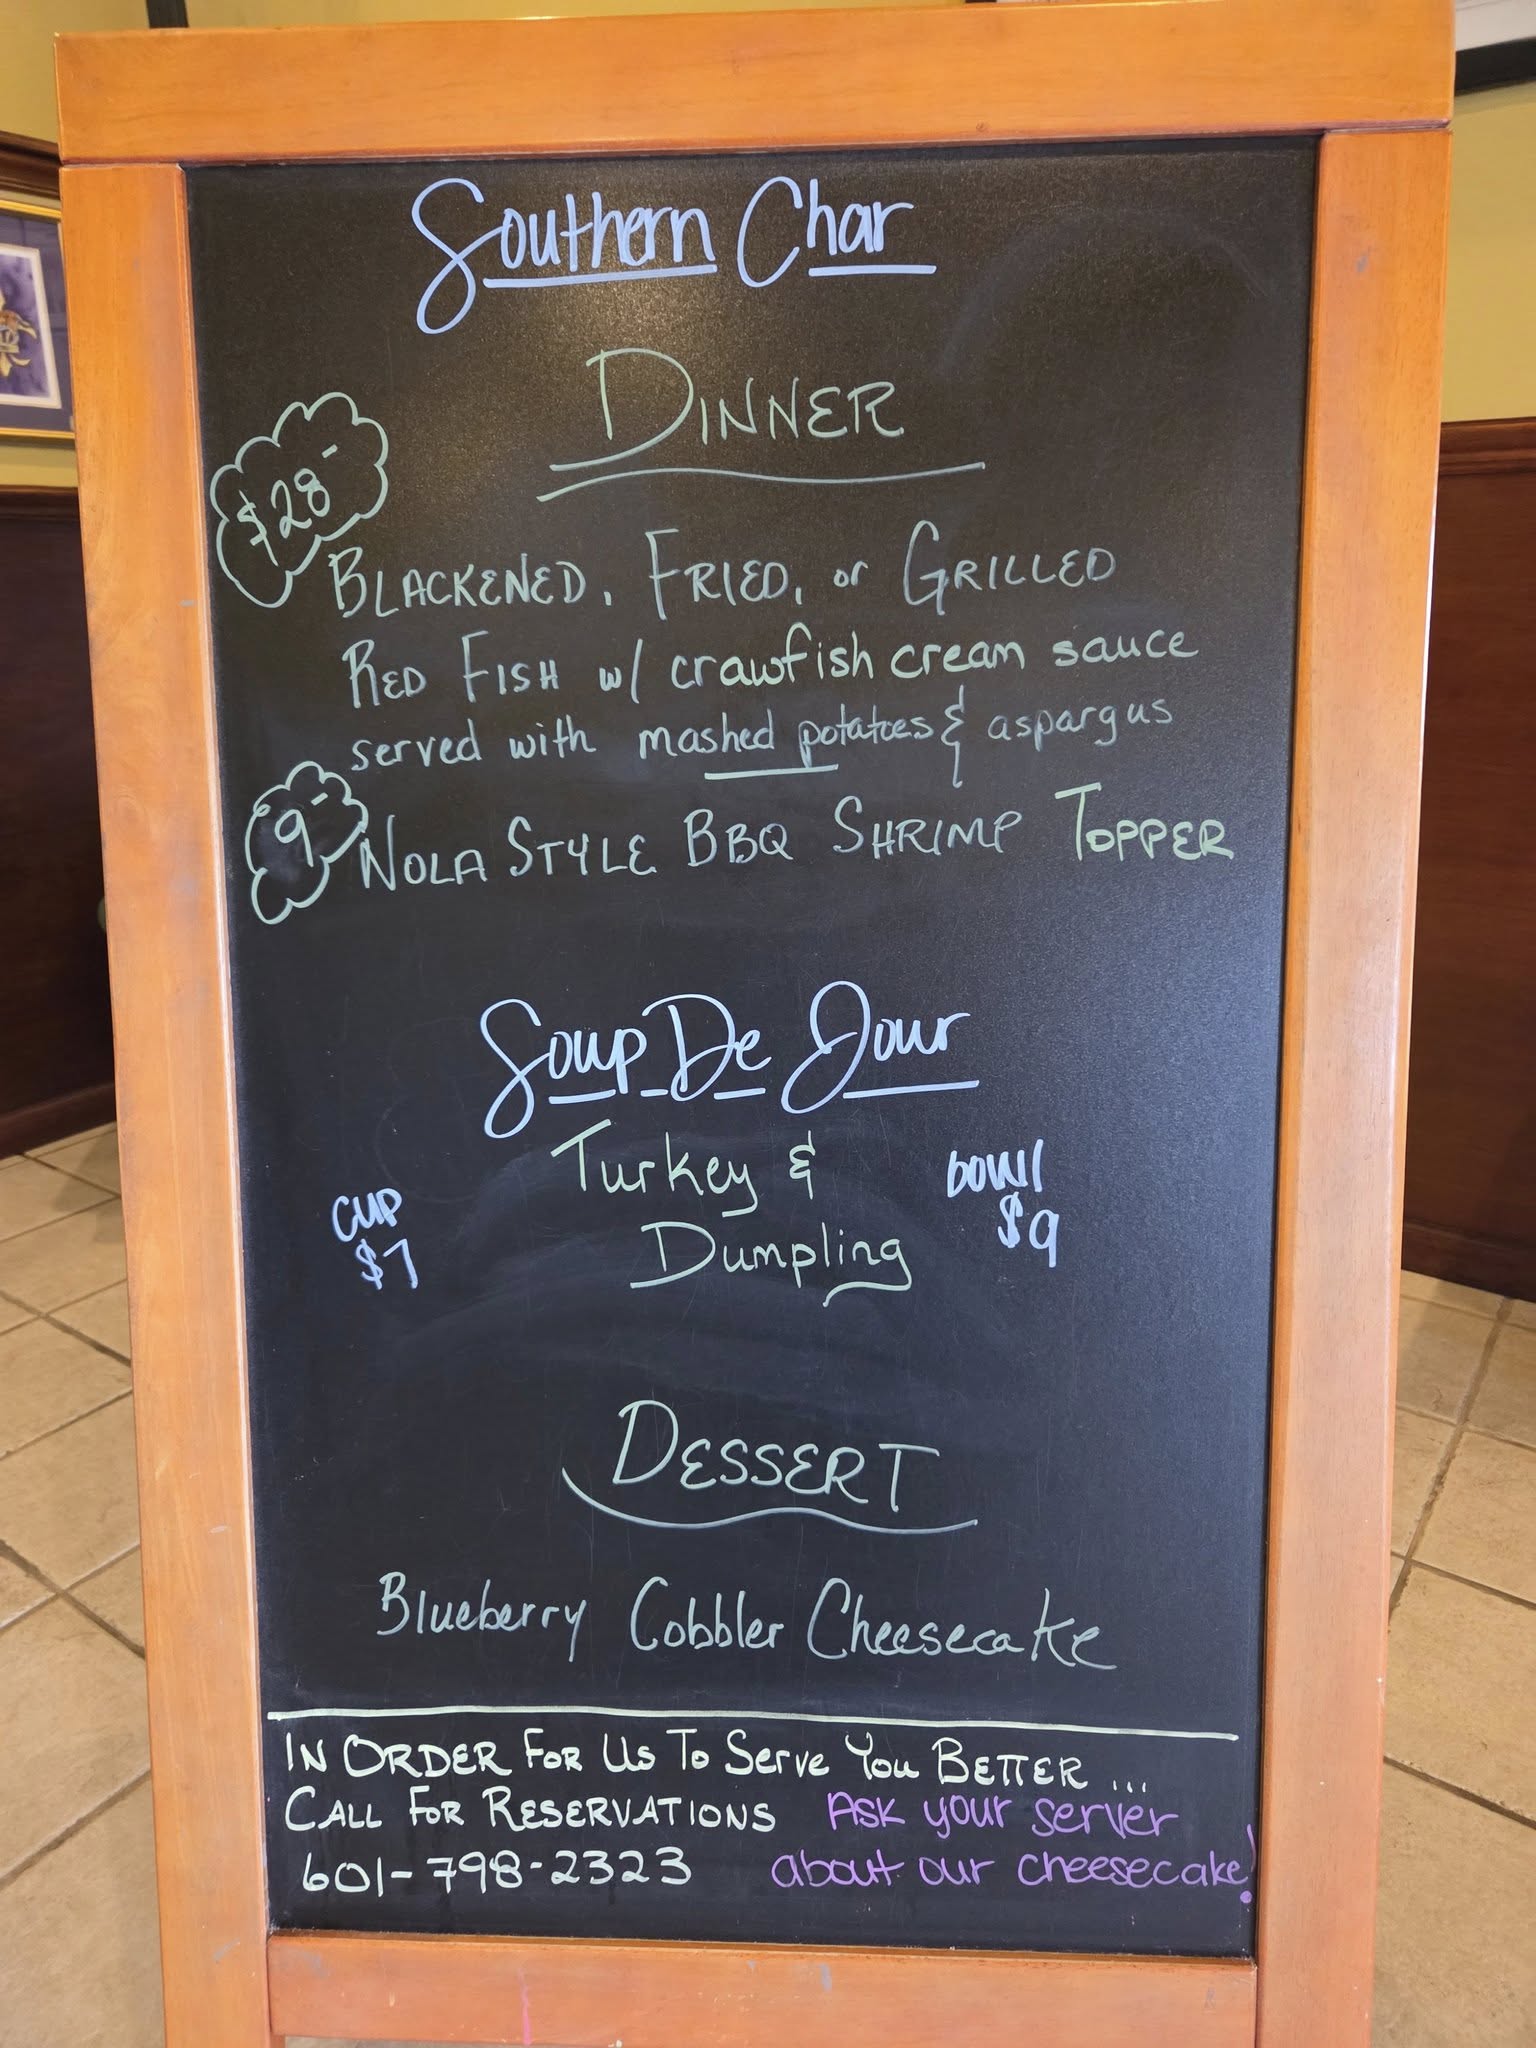 Southern Char
DINNER
$28-
BLACKENED, FRIED, or GRILLED
RED FISH w/ crawfish cream sauce
served with mashed potatoes & aspargus
9-
NOLA STYLE BBQ SHRIMP TOPPER
Soup De Jour
Turkey &
Dumpling
CUP
$7
bowl
$9
DESSERT
Blueberry Cobbler Cheesecake
IN ORDER FOR US TO SERVE YOU BETTER ...
CALL FOR RESERVATIONS
601-798-2323
Ask your server
about our cheesecake!